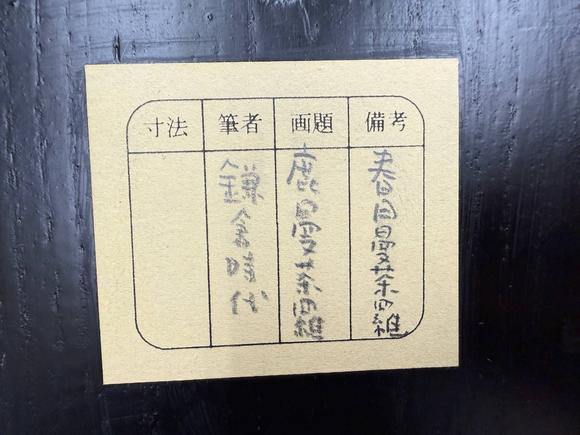 備考
春日曼荼羅
画題
鹿曼荼羅
筆者
鎌倉時代
寸法